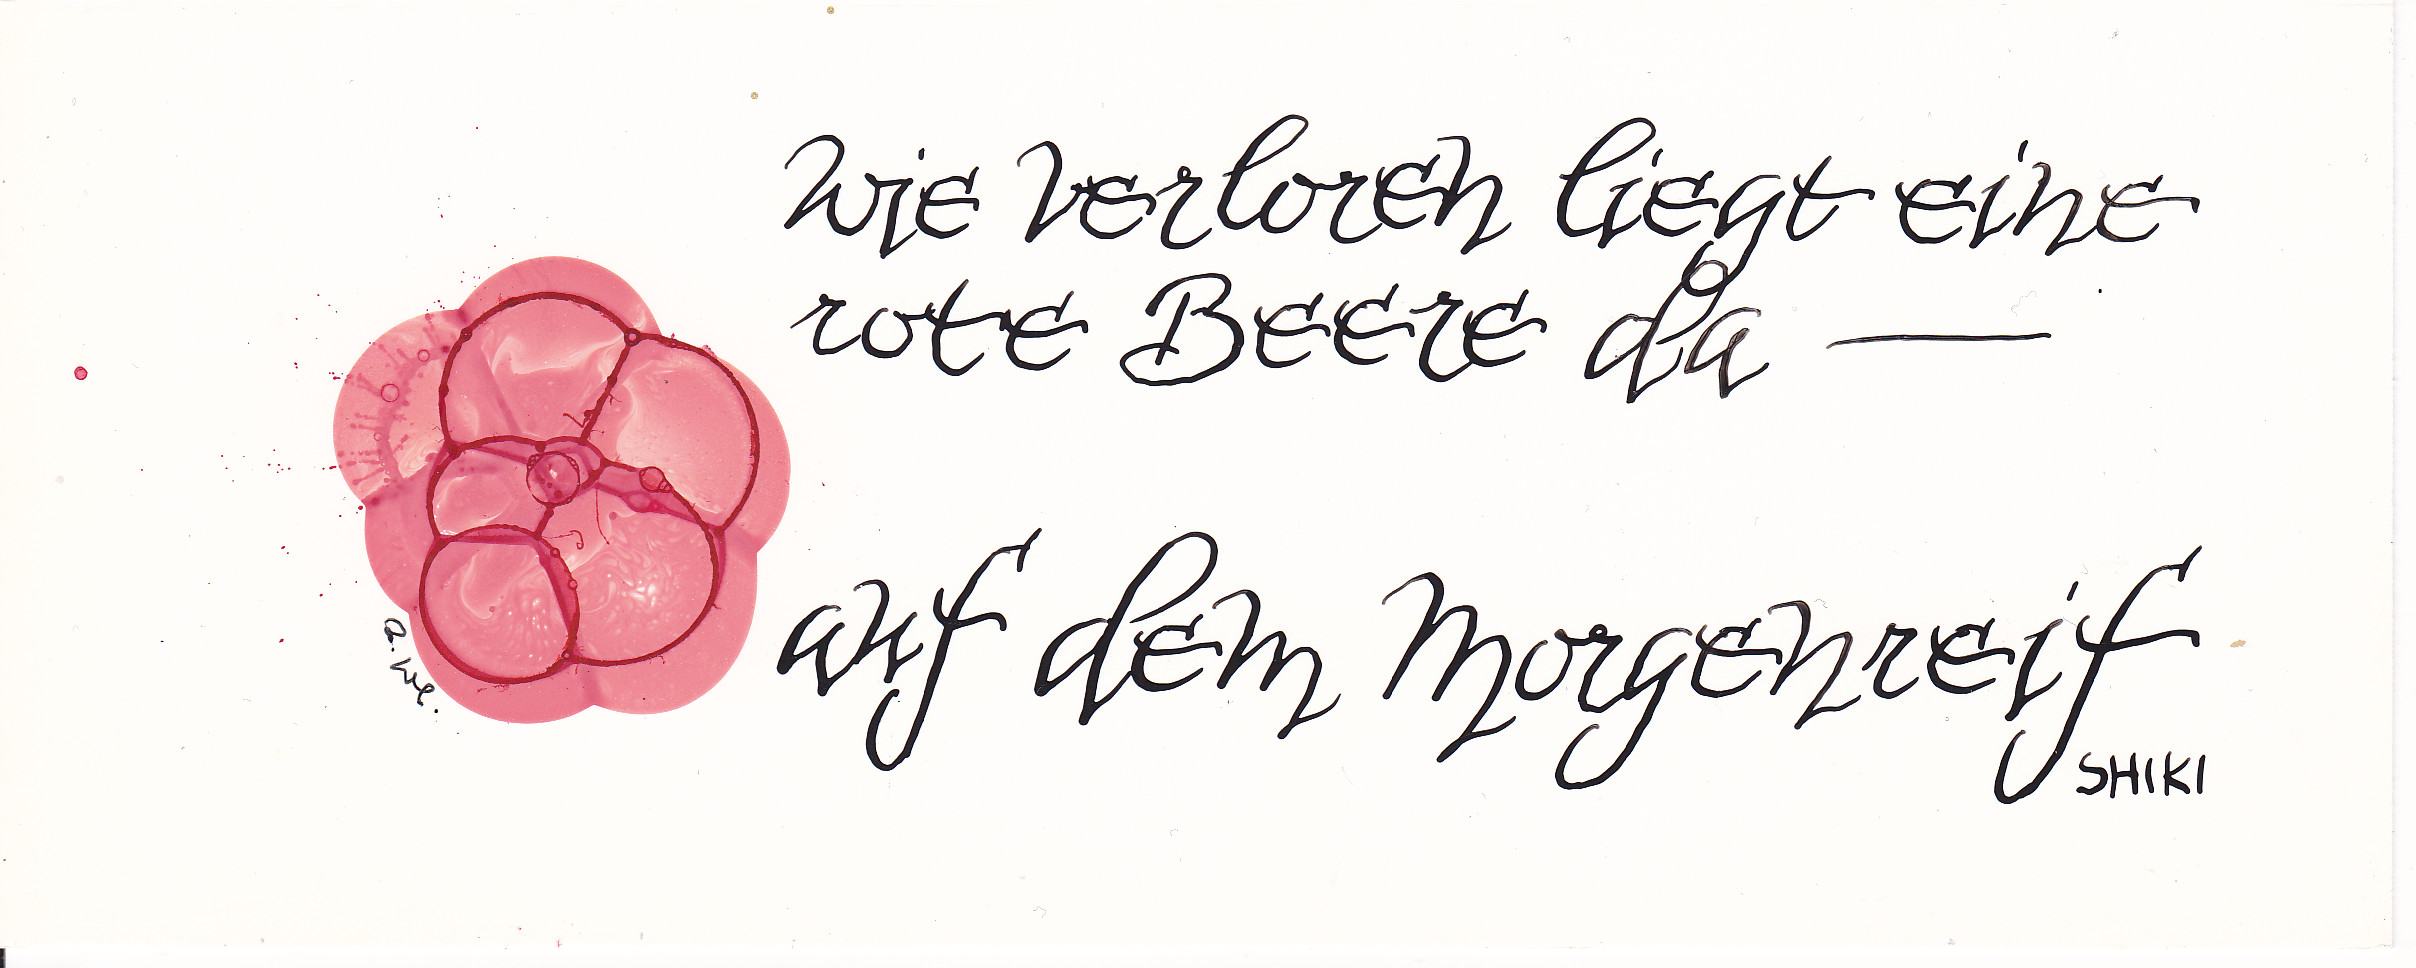 Wie verloren liegt eine
rote Beere da —
auf dem Morgenreif
SHIKI